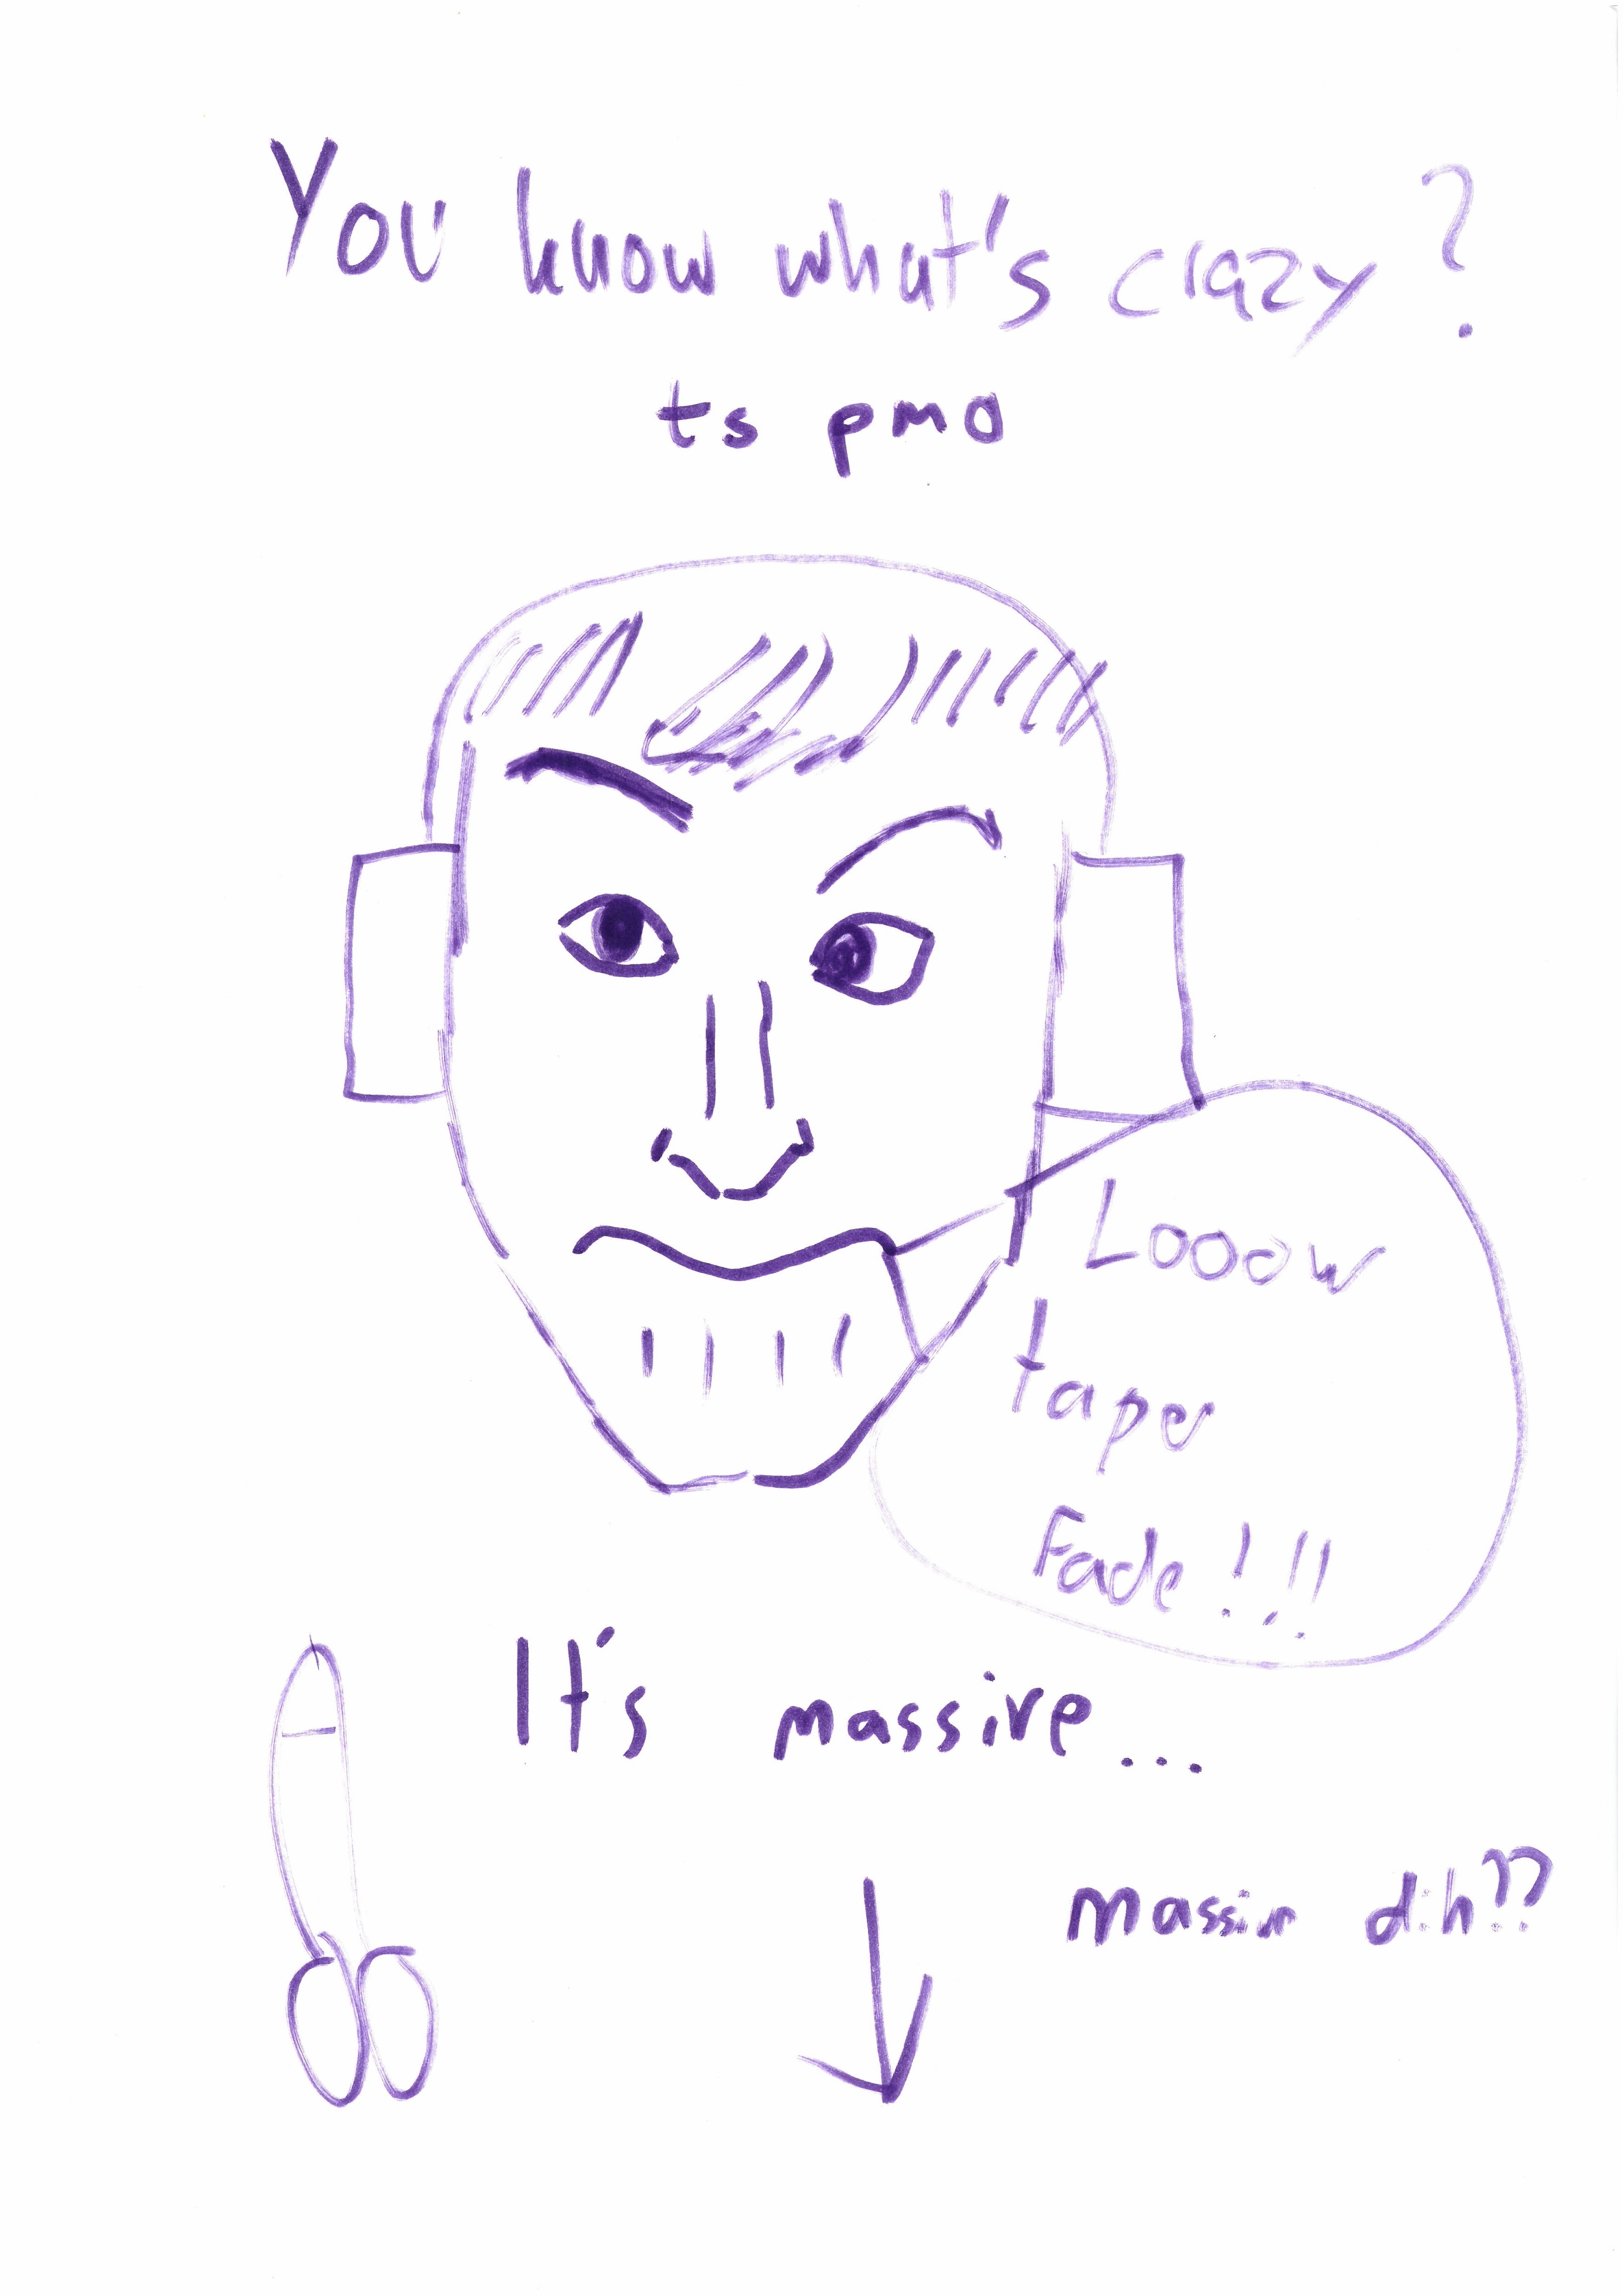 You know what's crazy?
ts pmo
Looow
taper
Fade!!!
It's massive...
massive dih??